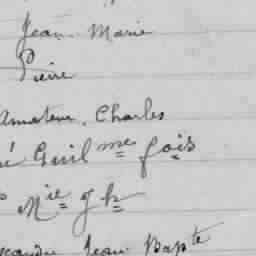 Jean Marie
Pierre
Amateur, Charles
é Guil me fois
Mie
Jean Bapte